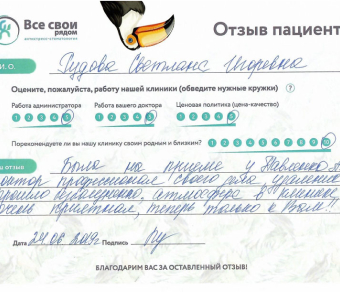 Все свои
рядом
Отзыв пациент
И. О. Рудова Светлана Игоревна
Оцените, пожалуйста, работу нашей клиники (обведите нужные кружки)
Работа администратора Работа вашего доктора Ценовая политика (цена-качество)
1 2 3 4 5 1 2 3 4 5 1 2 3 4 5
Порекомендуете ли вы нашу клинику своим родным и близким? 1 2 3 4 5 6 7 8 9 10
отзыв Была на приеме у Павленко А
октор профессионал своего дела, удаление
рошло атмосфера в клинике
очень приятная, теперь только к Вам!!
Дата 24.06 2019г Подпись
БЛАГОДАРИМ ВАС ЗА ОСТАВЛЕННЫЙ ОТЗЫВ!